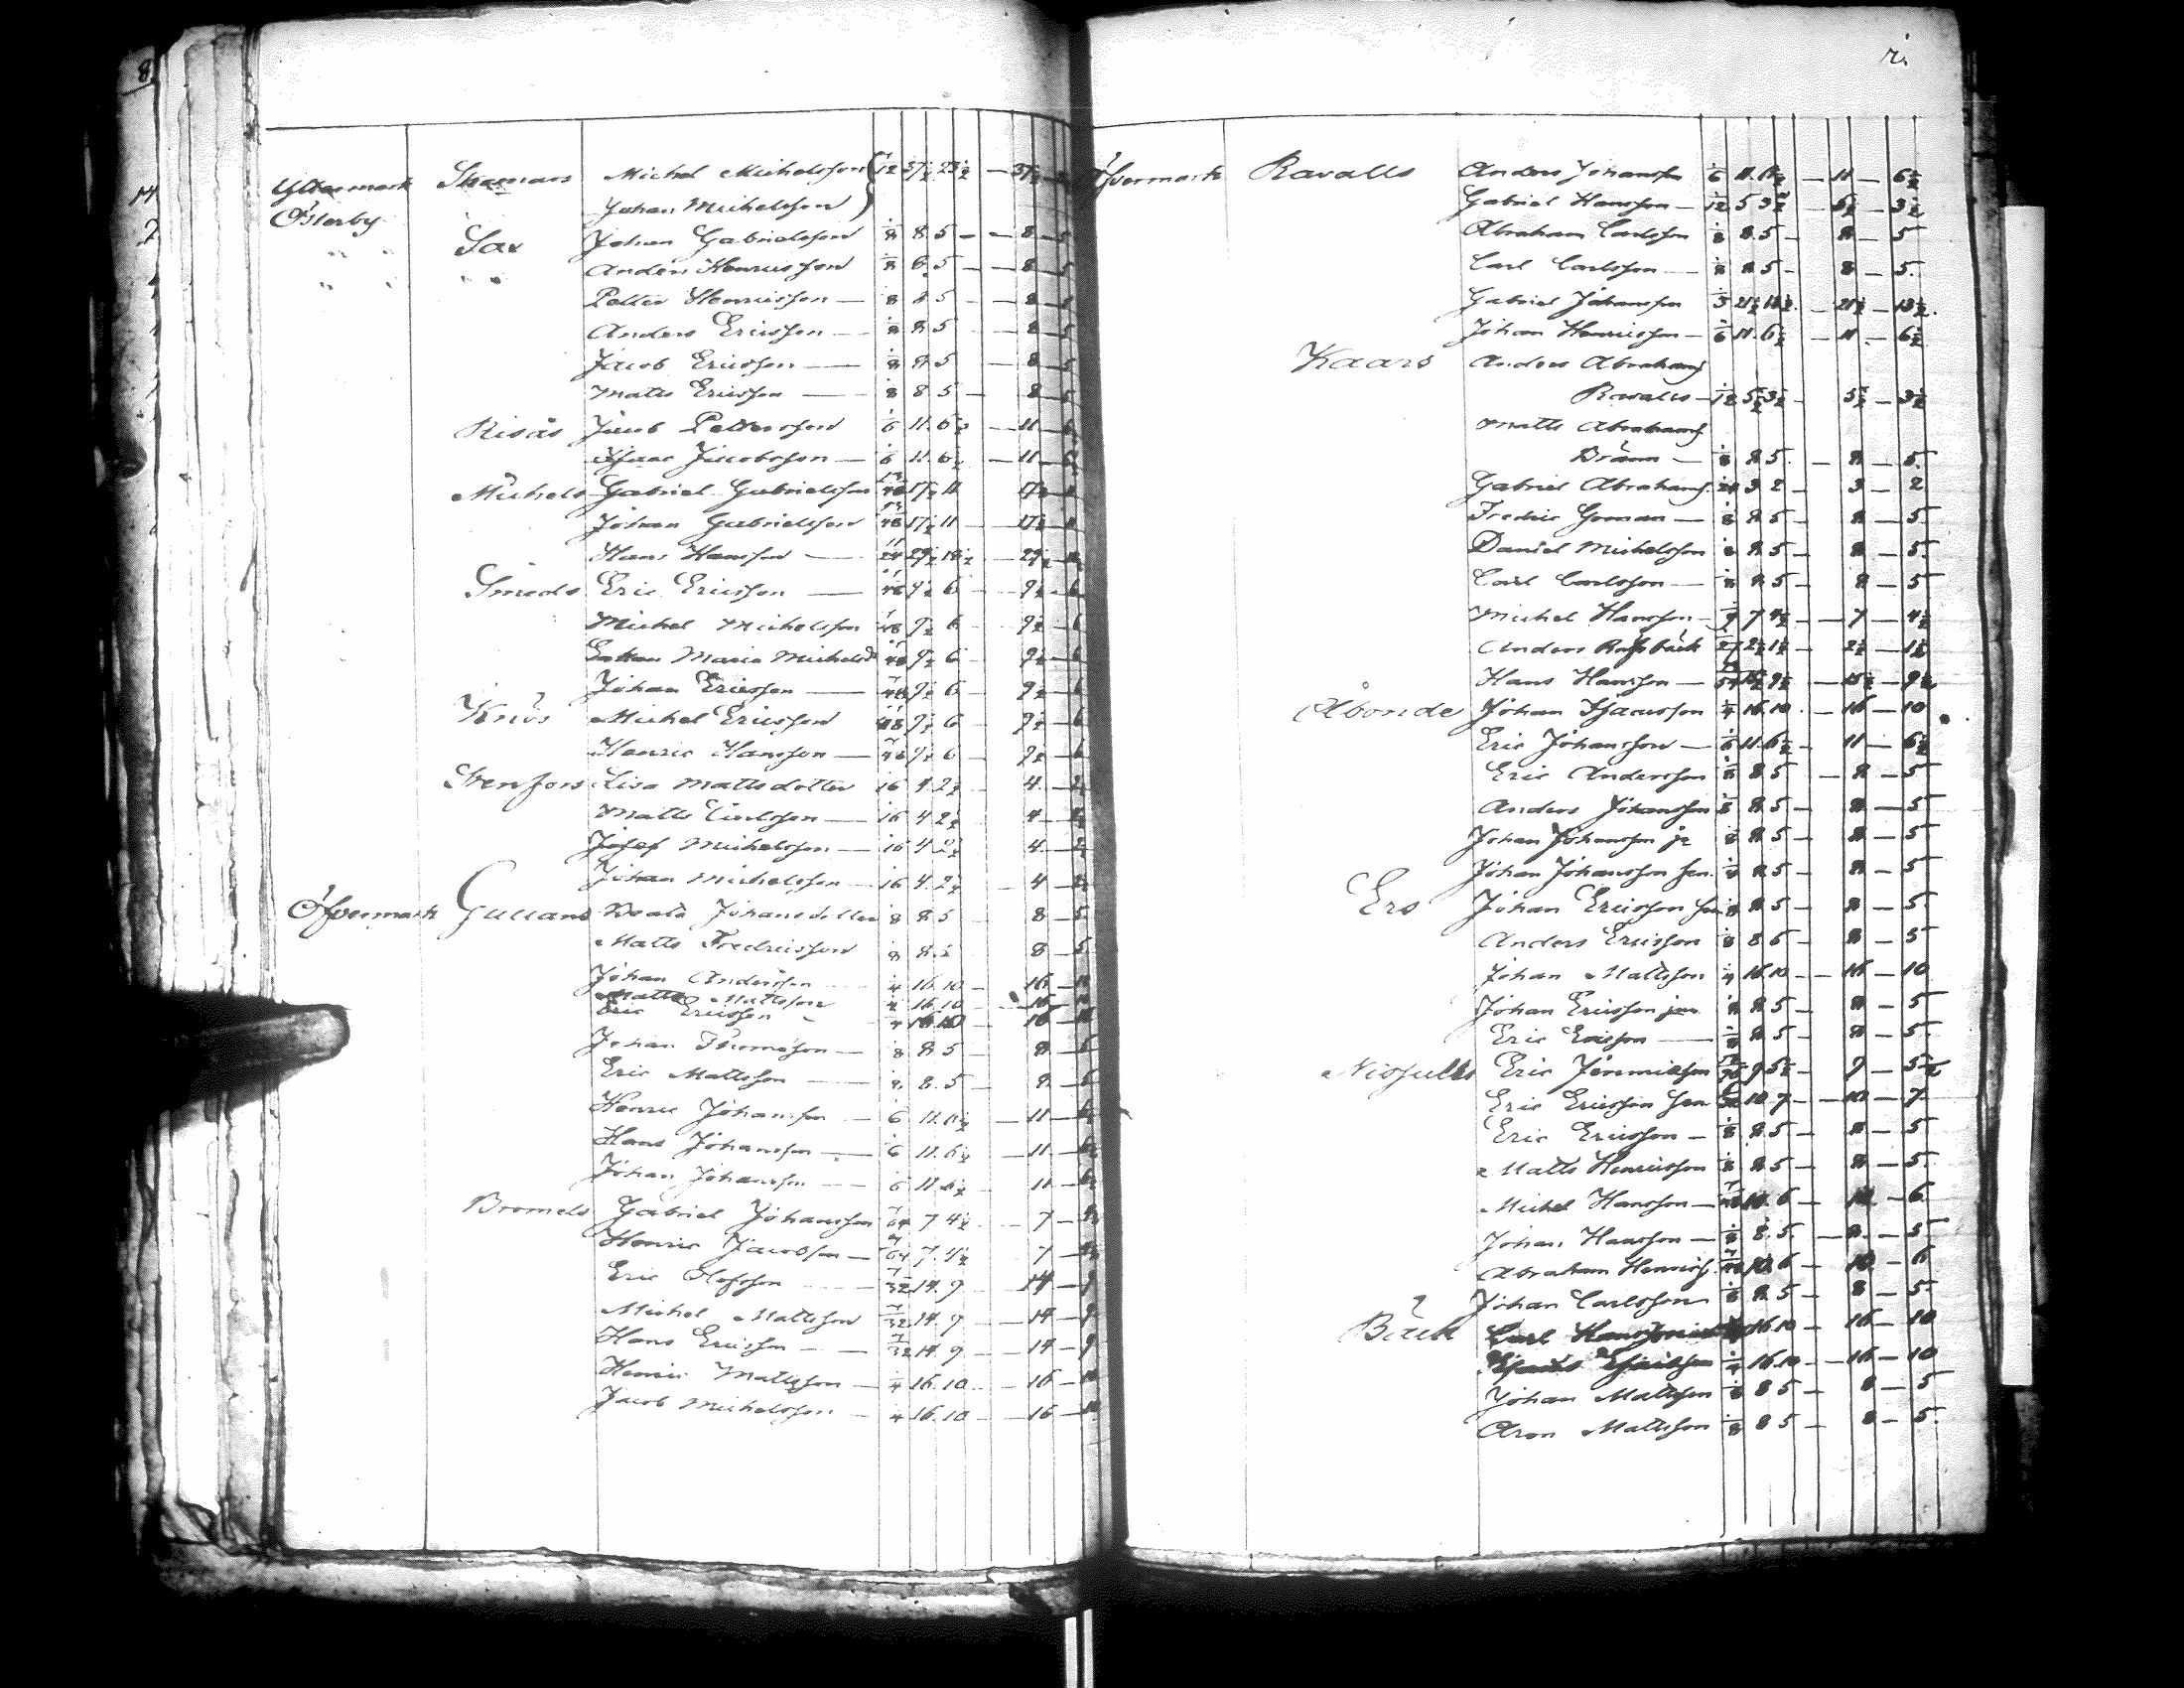 8.
Yttermark Skomars Michel Michelsson 1/12 37½ 23½ — 37½
Österby Johan Michelsson
" " Sax Johan Gabrielsson 1/8 8. 5 — — 8 — 5
" " " Anders Henricsson 1/8 8. 5 — — 8 — 5
Petter Henricsson — 1/8 8 5 — 8 — 5
Anders Ericsson — 1/8 8. 5 — 8 — 5
Jacob Ericsson — 1/8 8. 5 — 8 — 5
Matts Ericsson — 1/8 8 5 — 8 — 5
Risås Jacob Pettersson 1/6 11. 6½ — 11 — 6½
Isaac Jacobsson — 1/6 11. 6½ — 11 — 6½
Michels Gabriel Gabrielsson 13/48 17½ 11 17½ — 11
Johan Gabrielsson 13/48 17½ 11 — 17½ — 11
Hans Hansson — 11/24 29½ 18½ — 29½
Smeds Eric Ericsson — 7/48 9½ 6 — 9½ — 6
Michel Michelsson 7/48 9½ 6 9½ — 6
Maria Michelsd 7/48 9½ 6 9½ — 6
Johan Ericsson — 7/48 9½ 6 9½ — 6
Knös Michel Ericsson 7/48 9½ 6 9½ — 6
Henric Hansson — 7/48 9½ 6 9½ — 6
Stenfors Lisa Mattsdotter 1/16 4 2½ 4 — 2½
Matts Carlsson — 1/16 4 2½ 4 — 2½
Josef Michelsson — 1/16 4 2½ 4 — 2½
Johan Michelsson — 1/16 4. 2½ — 4 — 2½
Öfvermark Gullans Beata Johansdotter 1/8 8. 5 8 — 5
Matts Fredricsson 1/8 8. 5 8 — 5
Johan Andersson 1/4 16. 10 — 16 — 10
Matts Mattsson 1/4 16. 10 — 16 — 10
Eric Ericsson 1/4 16 10 16 — 10
Johan Thomasson — 1/8 8. 5 8 — 5
Eric Mattsson — 1/8 8. 5 — 8 — 5
Henric Johansson — 1/6 11. 6½ — 11 — 6½
Hans Johansson — 1/6 11. 6½ — 11 — 6½
Johan Johansson — 1/6 11. 6½ 11 — 6½
Bromels Gabriel Johansson 7/64 7 4½ — 7 — 4½
Henric Jacobsson — 7/64 7. 4½ 7 — 4½
Eric Olofsson — 7/32 14. 9 14 — 9
Michel Mattsson 7/32 14. 9 — 14 — 9
Hans Ericsson — 7/32 14 9 — 14 — 9
Henric Mattsson — 1/4 16. 10 — 16 — 10
Jacob Michelsson — 1/4 16. 10 — 16 — 10
Öfvermark Ravalls Anders Johansson 1/6 11. 6½ — 11 — 6½
Gabriel Hansson — 1/12 5 3½ — 5½ — 3½
Abraham Carlsson 1/8 8. 5 — 8 — 5
Carl Carlsson — 1/8 8 5 — 8 — 5.
Gabriel Johansson 1/3 21½ 13½. — 21½ — 13½.
Johan Henricsson — 1/6 11. 6½ — 11 — 6½
Kaars Anders Abrahams
Ravalls — 1/12 5½ 3½ — 5½ — 3½
Matts Abrahams
Bränn — 1/8 8 5. — 8 — 5.
Gabriel Abrahams. 1/24 3 2 — 3 — 2
Fredric Goman — 1/8 8 5 — 8 — 5
Daniel Michelsson 1/8 8 5 — 8 — 5.
Carl Carlsson — 1/8 8 5 — 8 — 5
Michel Hansson — 1/9 7 4½ — 7 — 4½
Anders Rossback 1/27 2½ 1½ — 2½ — 1½
Hans Hansson — 13/54 15½ 9½ — 15½ — 9½
Åbonde Johan Isacsson 1/4 16. 10. — 16 — 10
Eric Johansson — 1/6 11. 6½ — 11 — 6½
Eric Andersson 1/8 8 5 — 8 — 5
Anders Johansson 1/8 8. 5 — 8 — 5
Johan Johansson jr 1/8 8. 5 — 8 — 5
Johan Johansson sen. 1/8 8 5 — 8 — 5
Ers Johan Ericsson sen 1/8 8 5 — 8 — 5
Anders Ericsson 1/8 8 5 — 8 — 5
Johan Mattsson 1/4 16. 10 — — 16 — 10
Johan Ericsson jun 1/8 8 5 — 8 — 5
Eric Ericsson — 1/8 8. 5 — 8 — 5.
Nisjulls Eric Jeremiasson 9 5½ — 9 — 5½
Eric Ericsson sen 10. 7 — — 10 — 7.
Eric Ericsson — 1/8 8. 5 — 8 — 5
Matts Henricsson 1/8 8. 5 — 8 — 5.
Michel Hansson — 7/48 10. 6 — 10. — 6.
Johan Hansson — 1/8 8. 5. — 8. — 5
Abraham Henrics. 7/48 10. 6 — 10. — 6
Johan Carlsson 1/8 8. 5 — 8 — 5
Bäck Carl Hansson 16 10 — 16 — 10
1/4 16. 10 — — 16 — 10
Johan Mattsson 1/8 8 5 — 8 — 5
Aron Mattsson 1/8 8 5 — 8 — 5.